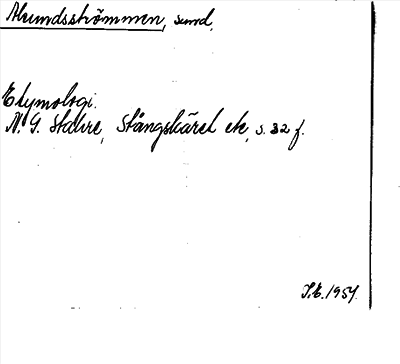 Alundsströmmen, sund.
Etymologi.
N. G. Stahre, Stångskäret etc, s. 32 f.
I.E. 1957.